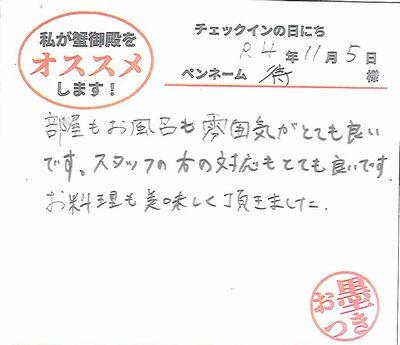 私が蟹御殿を
オススメ
します!
チェックインの日にち
R4年11月5日
ペンネーム 衛 様
部屋もお風呂も雰囲気がとても良い
です。スタッフの方の対応もとても良いです
お料理も美味しく頂きました。
お墨
つき